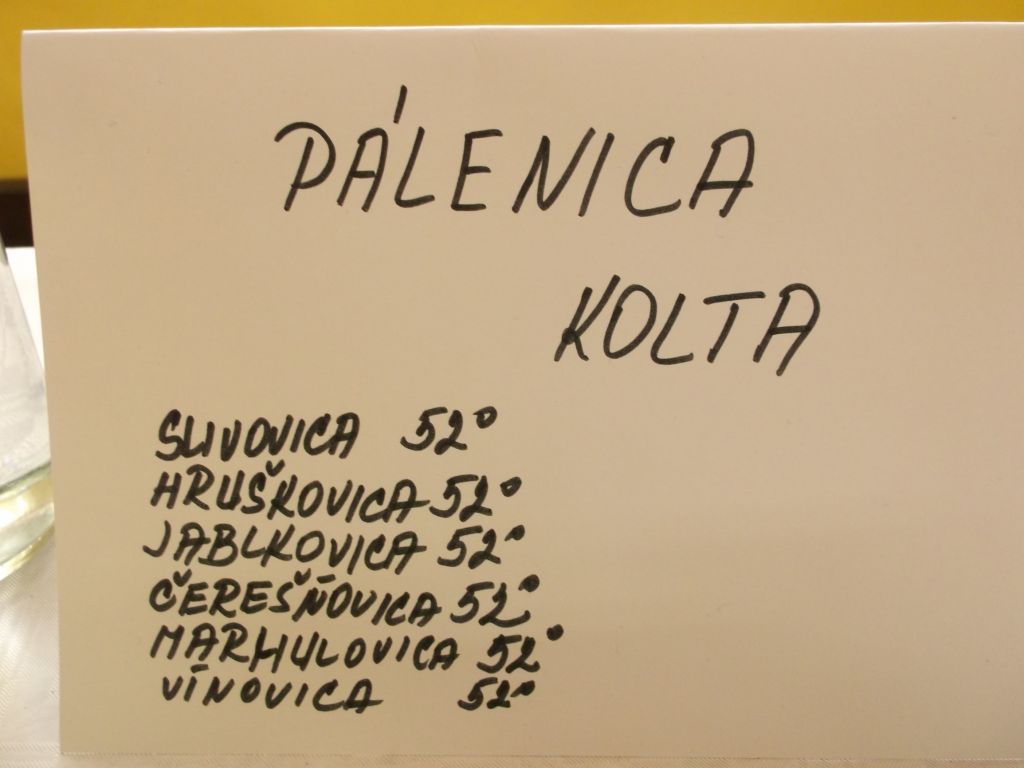 PÁLENICA
KOLTA
SLIVOVICA 52°
HRUŠKOVICA 52°
JABLKOVICA 52°
ČEREŠŇOVICA 52°
MARHULOVICA 52°
VÍNOVICA 52°